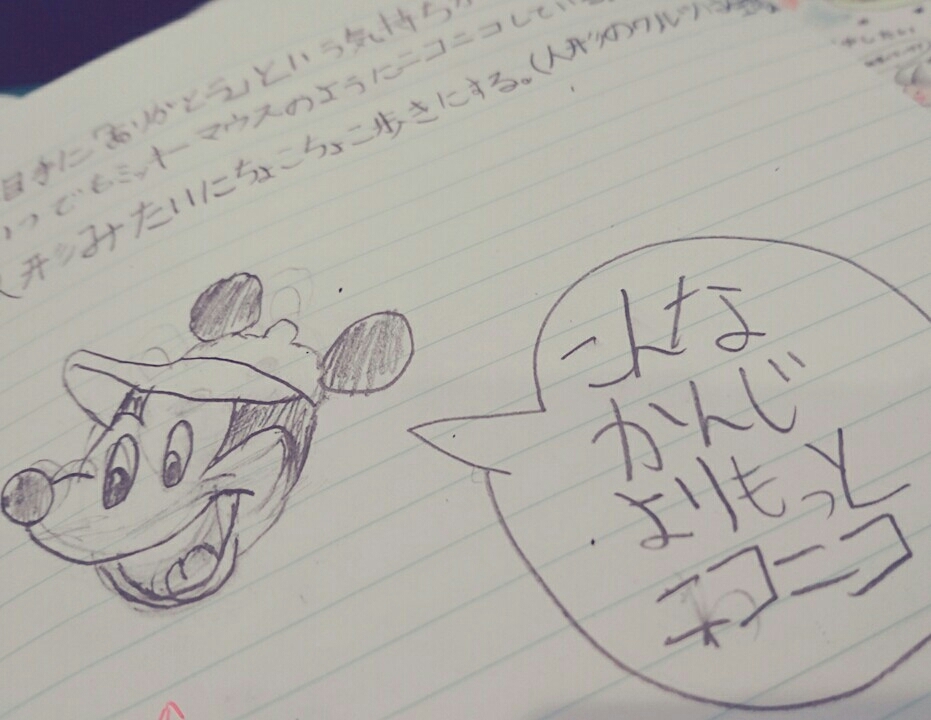 目きに「ありがとう」という気持ちが
いつでもミッキーマウスのようにニコニコしている
(人形みたいにちょこちょこ歩きにする。(人形のワルツ
こんな
かんじ
よりもっと
ニコニコ